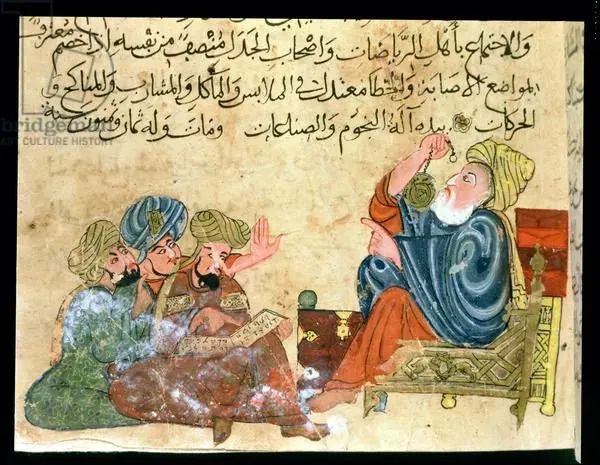 والاجتماع بأهل الرياضات واصحاب الجدل منصف من نفسه اذا خصم معترف
بمواضع الاصابة والخطا معتدل في الملابس والمآكل والمشارب والمناكح و
الحركات بيده آلة النجوم ومات وله ثمان وستون سنة
bridgeman
CULTURE HISTORY